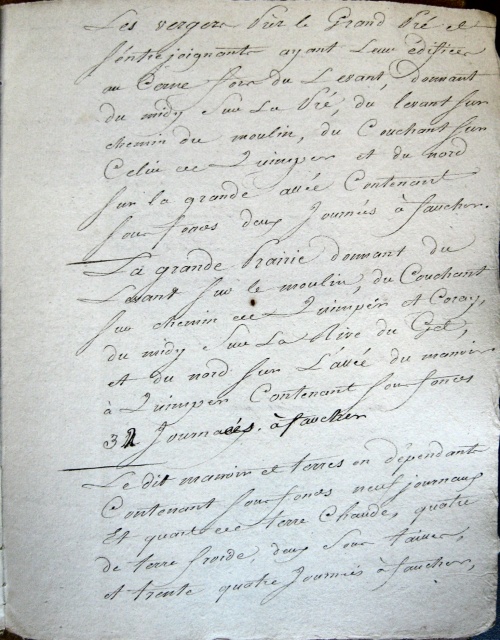 Les vergers Pier le Grand Pré et
S'entrejoignants ayant Leur édifices
au Cerne fors du Levant, Donnant
du midy sur La Pré, du levant sur
chemin du moulin, du Couchant sur
Celui de Quimper et du nord
sur la grande allée Contenant
sous fonds deux Journées à faucher.
La grande Prairie donnant du
Levant sur le moulin, du Couchant
sur chemin de Quimper et Coray,
du midy sur La Rive du Get,
et du nord sur L'allée du manoir
à Quimper Contenant sous fonds
32 Journées à faucher
Le dit manoir et terres en dépendants
Contenant sous fonds neuf journaux
Et quart de terre Chaude, quatre
de terre froide, deux sous taillis,
et trente quatre Journées à faucher,